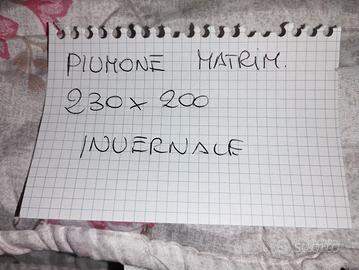 PIUMONE MATRIM.
230x200
INVERNALE
subito